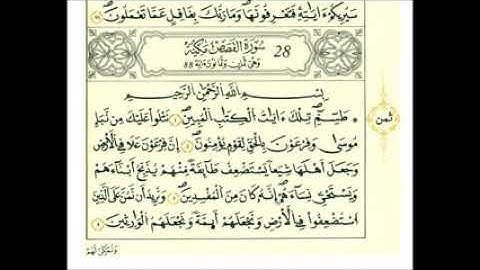 سَيُرِيكُمْ ءَايَٰتِهِۦ فَتَعْرِفُونَهَا وَمَا رَبُّكَ بِغَٰفِلٍ عَمَّا تَعْمَلُونَ
سُورَةُ القَصَصِ مَكِّيَّة 28
وَهْىَ ثَمَانٍ وَثَمَانُونَ ءَايَة 88
بِسْمِ اللَّهِ الرَّحْمَٰنِ الرَّحِيمِ
طَسِٓمِّٓ تِلْكَ ءَايَٰتُ الْكِتَٰبِ الْمُبِينِ نَتْلُوا عَلَيْكَ مِن نَّبَإِ
ثمن
مُوسَىٰ وَفِرْعَوْنَ بِالْحَقِّ لِقَوْمٍ يُومِنُونَ إِنَّ فِرْعَوْنَ عَلَا فِي الْأَرْضِ
وَجَعَلَ أَهْلَهَا شِيَعًا يَسْتَضْعِفُ طَآئِفَةً مِّنْهُمْ يُذَبِّحُ أَبْنَآءَهُمْ
وَيَسْتَحْيِۦ نِسَآءَهُمْ إِنَّهُۥ كَانَ مِنَ الْمُفْسِدِينَ وَنُرِيدُ أَن نَّمُنَّ عَلَى الَّذِينَ
اسْتُضْعِفُوا فِي الْأَرْضِ وَنَجْعَلَهُمْ أَئِمَّةً وَنَجْعَلَهُمُ الْوَٰرِثِينَ
وَنُمَكِّنَ لَهُمْ